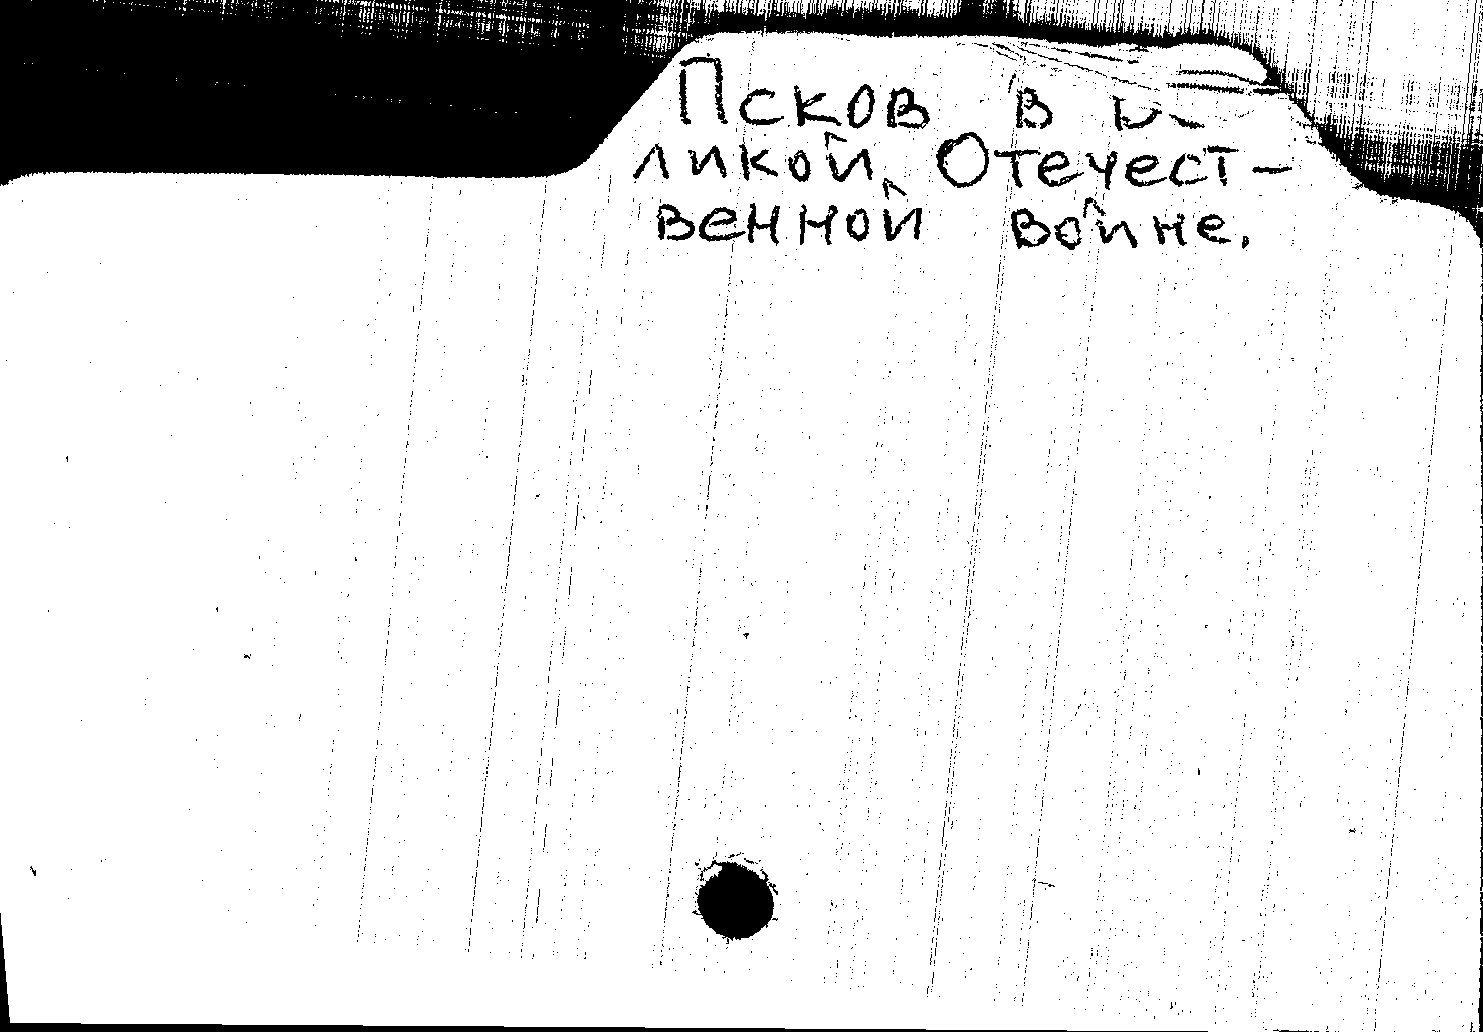 Псков в Ве-
ликой Отечест-
венной войне.